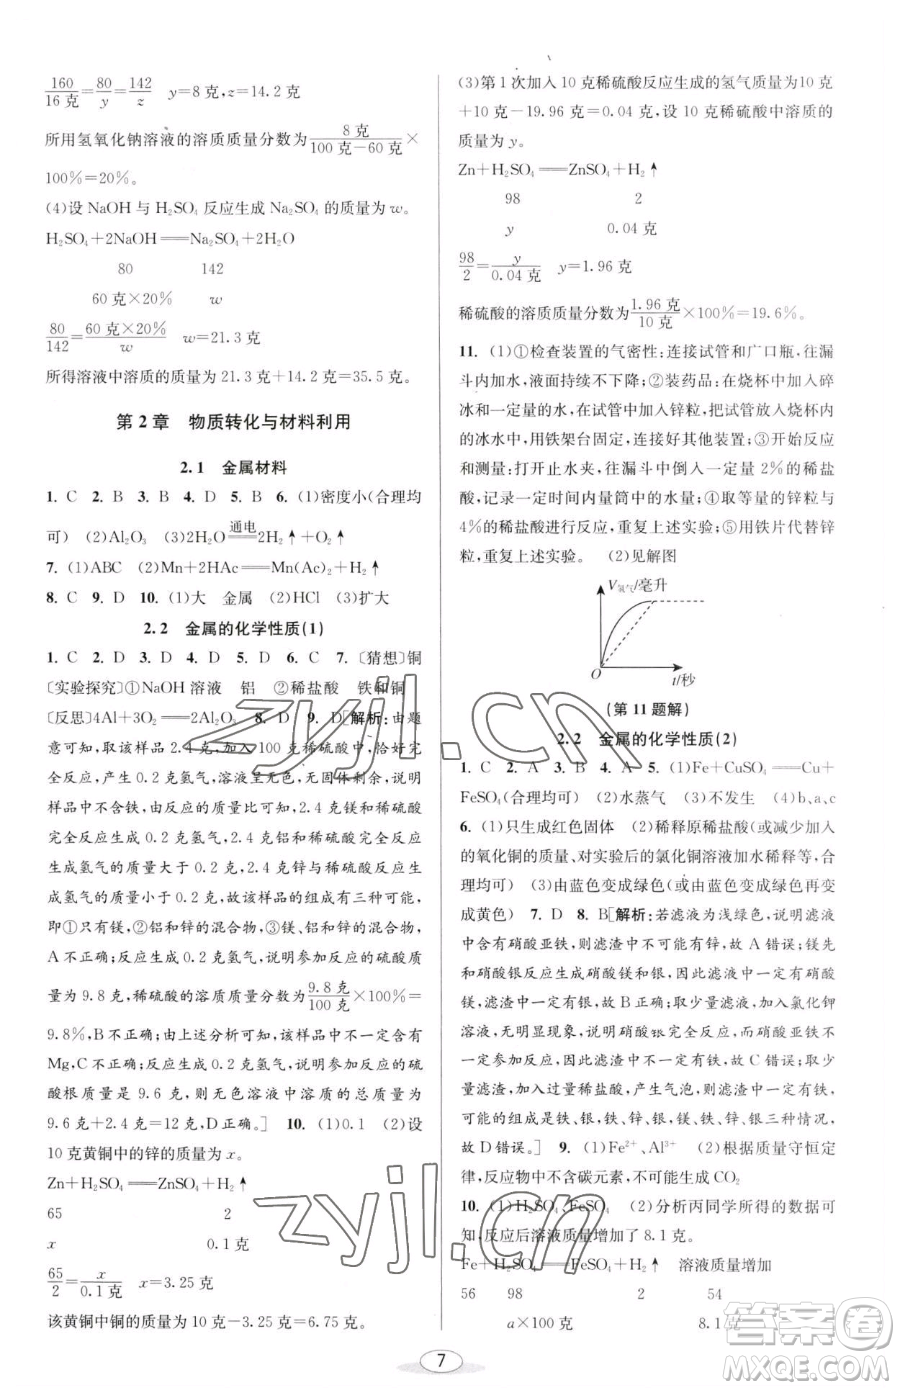 160/16克=80/y=142/z  y=8克,z=14.2克
所用氢氧化钠溶液的溶质质量分数为8克/(100克-60克)×
100%=20%。
(4)设 NaOH 与 H₂SO₄ 反应生成 Na₂SO₄ 的质量为 w。
H₂SO₄+2NaOH══Na₂SO₄+2H₂O
80  142
60克×20%  w
80/142=60克×20%/w  w=21.3克
所得溶液中溶质的质量为 21.3克+14.2克=35.5克。
第2章 物质转化与材料利用
2.1 金属材料
1. C 2. B 3. B 4. D 5. B 6. (1)密度小(合理均
可) (2)Al₂O₃ (3)2H₂O══(通电)2H₂↑+O₂↑
7. (1)ABC (2)Mn+2HAc══Mn(Ac)₂+H₂↑
8. C 9. D 10. (1)大 金属 (2)HCl (3)扩大
2.2 金属的化学性质(1)
1. C 2. D 3. D 4. D 5. C 6. C 7. [猜想]铜
[实验探究]①NaOH 溶液 铝 ②稀盐酸 铁和铜
[反思]4Al+3O₂══2Al₂O₃ 8. D 9. D[解析:由题
意可知,取该样品2.4克,加入100克稀硫酸,恰好完
全反应,产生0.2克氢气,溶液呈无色,无固体剩余,说明
样品中不含铁,由反应的质量比可知,2.4克镁和稀硫酸
完全反应生成0.2克氢气,2.4克铝和稀硫酸完全反应
生成氢气的质量大于0.2克,2.4克锌与稀硫酸完全反
应生成氢气的质量小于0.2克,样品的组成有三种可能,
即①只有镁,②铝和锌的混合物,③镁、铝和锌的混合物,
A不正确;由反应生成0.2克氢气,说明参加反应的硫酸
质量为9.8克,稀硫酸的溶质质量分数为9.8克/100克×100%=
9.8%,B不正确;由上述分析可知,该样品中不一定含有
Mg,C不正确;由反应生成0.2克氢气,说明参加反应的硫
酸根质量是9.6克,则无色溶液中溶质的总质量是
9.6克+2.4克=12克,D正确。] 10. (1)0.1 (2)设
10克黄铜中的锌的质量为 x。
Zn+H₂SO₄══ZnSO₄+H₂↑
65  2
x  0.1克
65/2=x/0.1克  x=3.25克
该黄铜中铜的质量为 10克-3.25克=6.75克。
(3)第1次加入10克稀硫酸反应生成的氢气质量为10克
+10克-19.96克=0.04克,设10克稀硫酸中溶质的
质量为 y。
Zn+H₂SO₄══ZnSO₄+H₂↑
98  2
y  0.04克
98/2=y/0.04克  y=1.96克
稀硫酸的溶质质量分数为1.96克/10克×100%=19.6%。
11. (1)①检查装置的气密性:连接试管和广口瓶,往漏
斗内加水,液面持续不下降;②装药品:在烧杯中加入碎
冰和一定量的水,在试管中加入锌粒,将试管放入烧杯中
的冰水中,用铁架台固定,连接导管和量筒;③开始反应
和测量:打开止水夹,往漏斗中倒入一定量2%的稀盐
酸,记录一定时间内量筒中的水量;④取等量的锌粒与
4%的稀盐酸进行反应,重复上述实验;⑤用铁片代替锌
粒,重复上述实验。 (2)见解图
V氢气/毫升
O
t/秒
(第11题解)
2.2 金属的化学性质(2)
1. C 2. A 3. B 4. A 5. (1)Fe+CuSO₄══Cu+
FeSO₄(合理均可) (2)水蒸气 (3)不发生 (4)b、a、c
6. (1)只生成红色固体 (2)稀释原稀盐酸(或减少加入
的氧化铜的质量、对实验后的氯化铜溶液加水稀释等,合
理均可) (3)由蓝色变成绿色(或由蓝色变成绿色再变
成黄色) 7. D 8. B[解析:若滤液为浅绿色,说明滤液
中含有硝酸亚铁,则滤渣中不可能有锌,故A错误;镁先
和硝酸银反应生成硝酸镁和银,因此滤液中一定有硝酸
镁,滤渣中一定有银,故B正确;取少量滤液,加入氯化钾
溶液,无明显现象,说明滤液中无硝酸银,而硝酸亚铁不
一定参加反应,因此滤渣中不一定有铁,故C错误;取少
量滤渣,加入过量稀盐酸,产生气泡,则滤渣中一定有铁,
可能的组成是铁、银,铁、锌、银,镁、铁、锌、银三种情况,
故D错误。] 9. (1)Fe²⁺、Al³⁺ (2)根据质量守恒定
律,反应物中不含碳元素,不可能生成CO₂
10. (1)H₂SO₄、FeSO₄ (2)分析丙同学所得的数据可
知,反应后溶液质量增加了8.1克。
Fe+H₂SO₄══FeSO₄+H₂↑ 溶液质量增加
56  98  2  54
a×100克  8.1克
7
zyjl.cn
zyjl.cn
答案圈
MXQE.COM